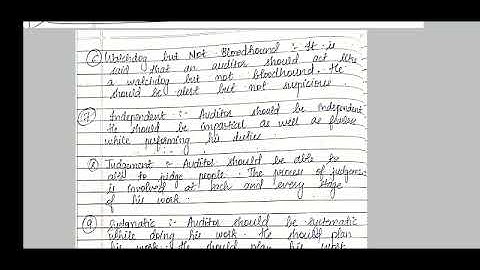 6 Watchdog but Not Bloodhound :- It is
said that an auditor should act like
a watchdog but not bloodhound. He
should be alert but not supicious.
7 Independent :- Auditor should be independent
He should be impartial as well as fearless
while performing his duties.
8 Judgement :- Auditor should be able to
able to judge people. The process of judgemen
is involved at each and every stage
of his work.
9 Systematic :- Auditor should be systematic
while doing his work. He should plan
his work. He should plan his work